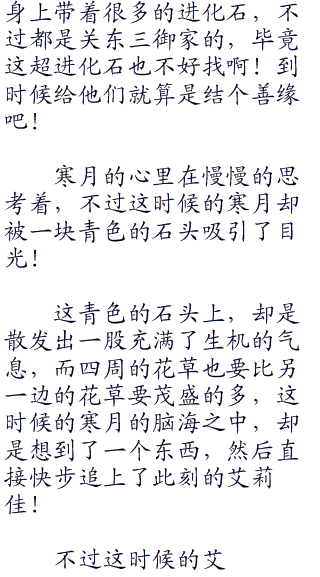 身上带着很多的进化石，不
过都是关东三御家的，毕竟
这超进化石也不好找啊！到
时候给他们就算是结个善缘
吧！
寒月的心里在慢慢的思
考着，不过这时候的寒月却
被一块青色的石头吸引了目
光！
这青色的石头上，却是
散发出一股充满了生机的气
息，而四周的花草也要比另
一边的花草要茂盛的多，这
时候的寒月的脑海之中，却
是想到了一个东西，然后直
接快步追上了此刻的艾莉
佳！
不过这时候的艾